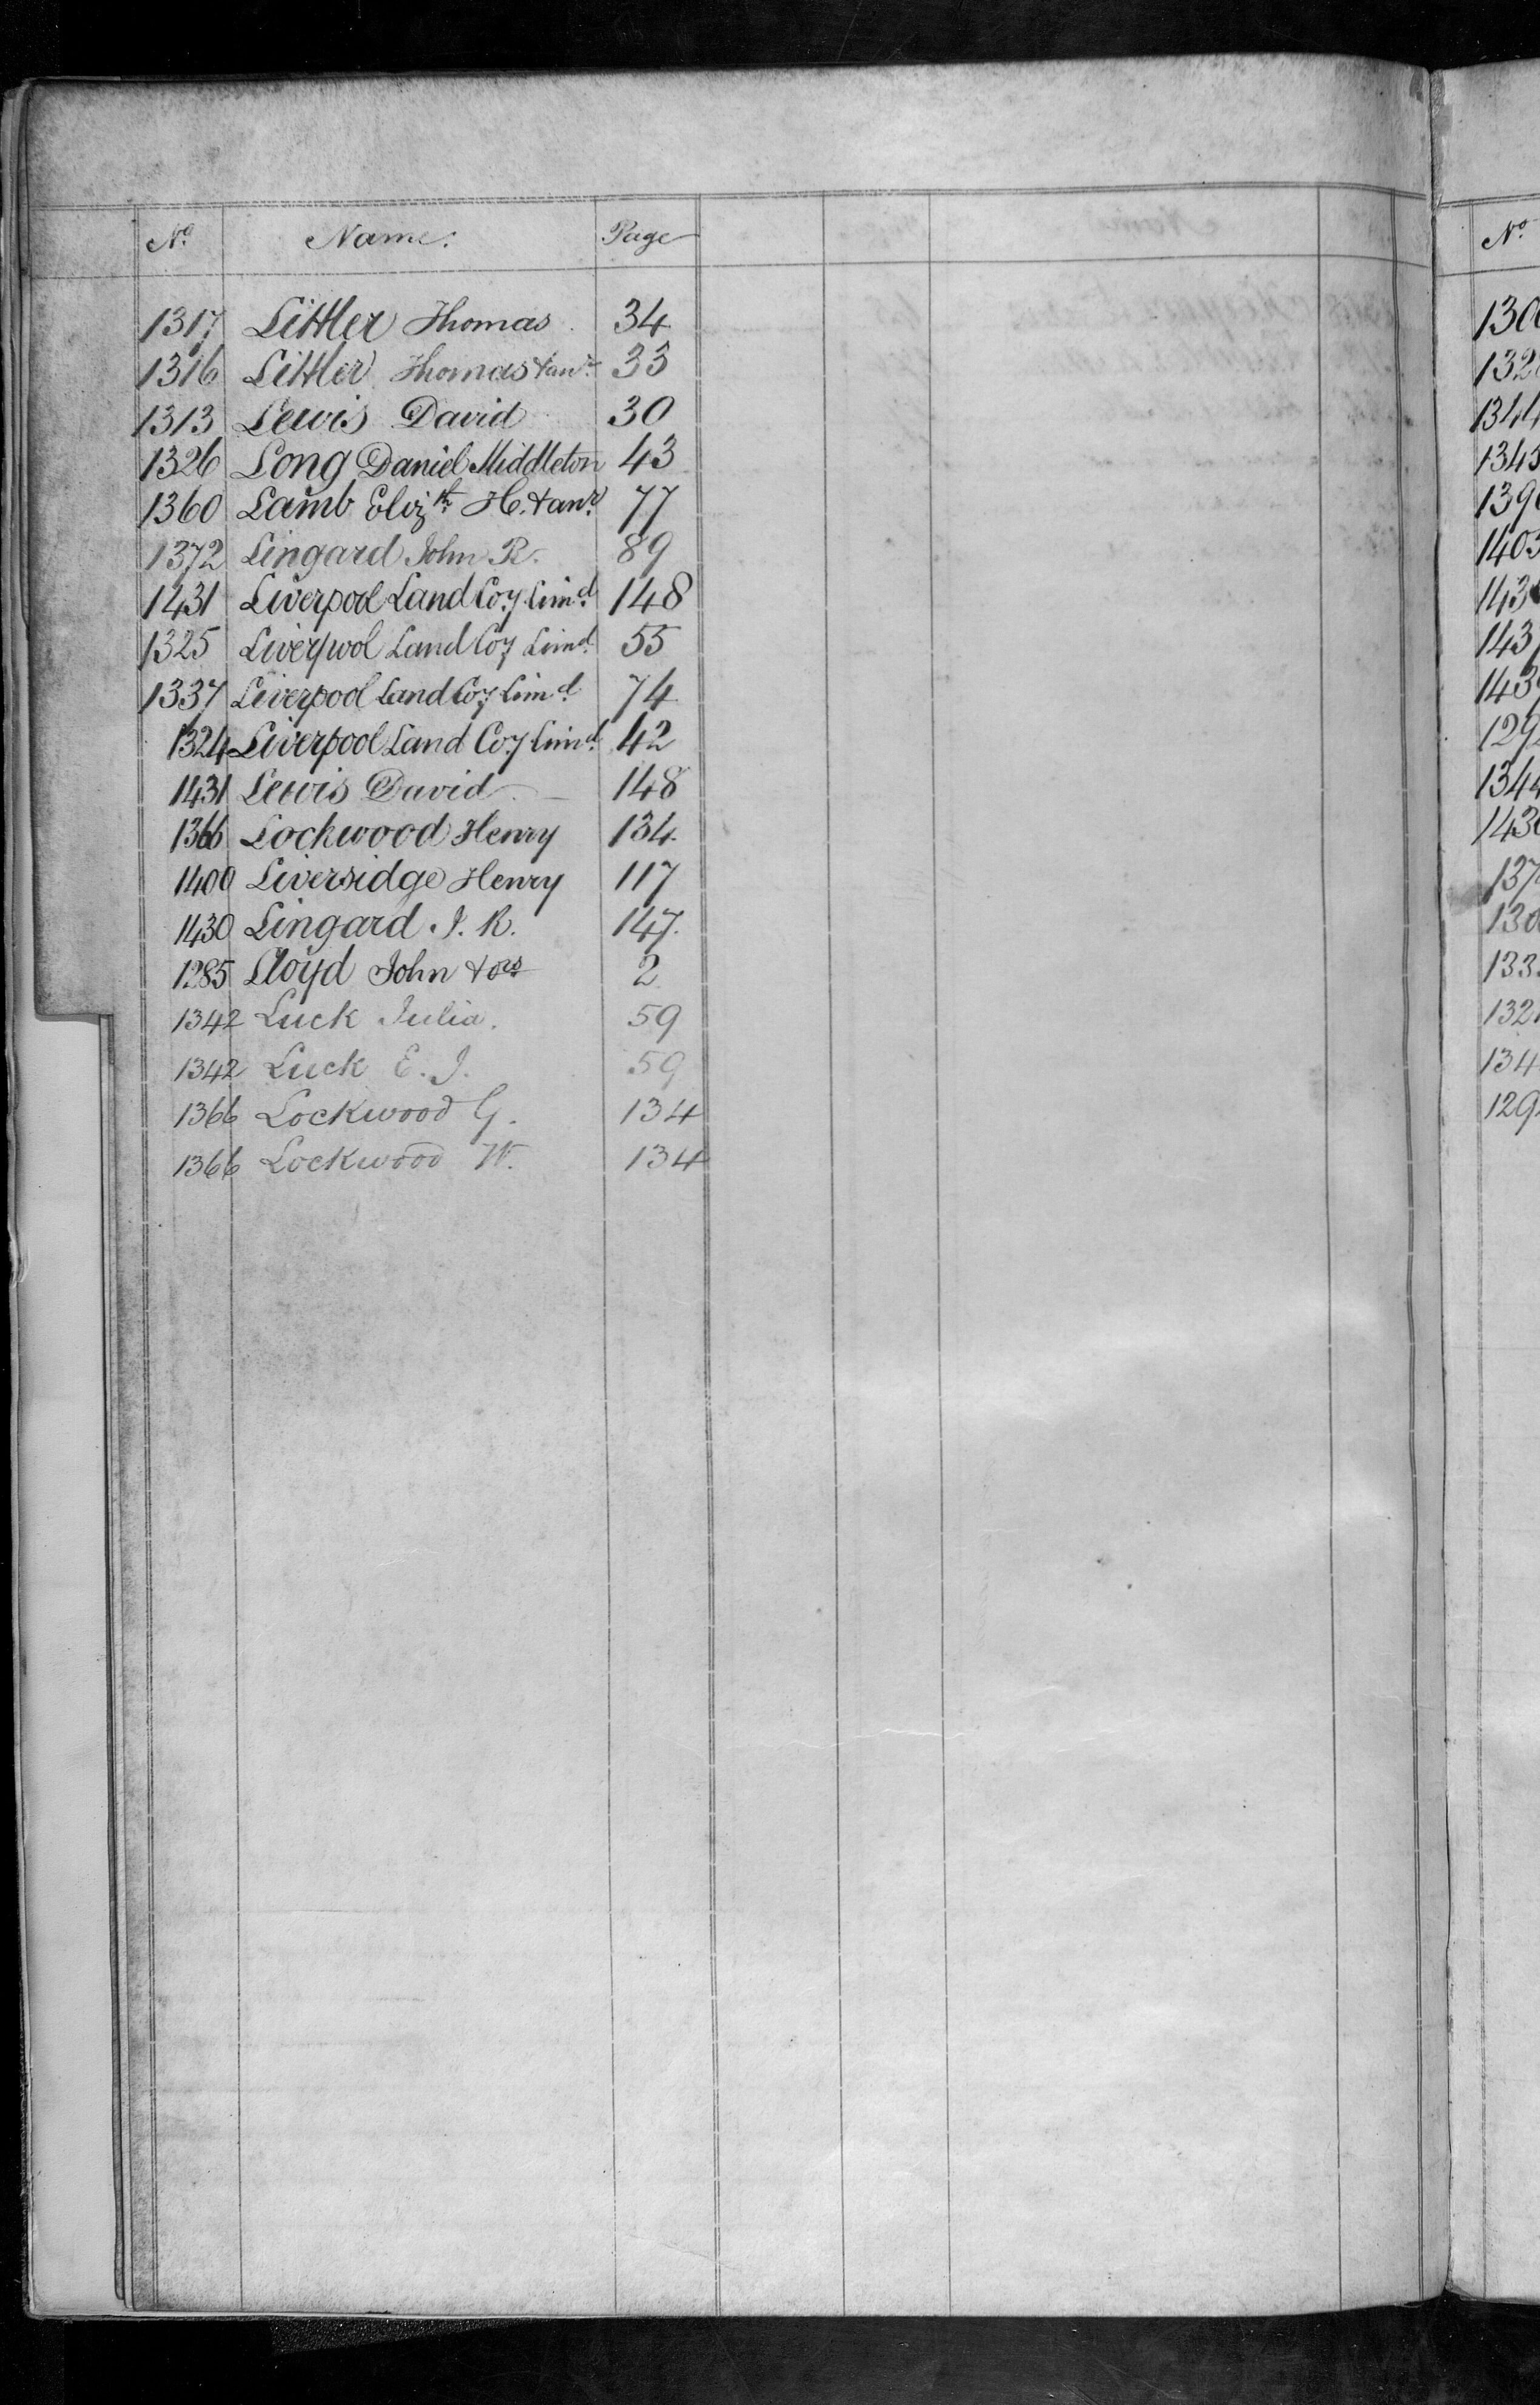 No. Name. Page
1317 Littler Thomas 34
1316 Littler Thomas + anr. 33
1313 Lewis David 30
1326 Long Daniel Middleton 43
1360 Lamb Elizth. H. + anr. 77
1372 Lingard John R. 89
1431 Liverpool Land Coy. Limd. 148
1325 Liverpool Land Coy Limd. 55
1337 Liverpool Land Coy Limd. 74
1324 Liverpool Land Coy Limd. 42
1431 Lewis David 148
1366 Lockwood Henry 134
1400 Liversidge Henry 117
1430 Lingard J. R. 147
1285 Lloyd John + ors 2
1342 Luck Julia. 59
1342 Luck E. J. 59
1366 Lockwood G. 134
1366 Lockwood W. 134
No.